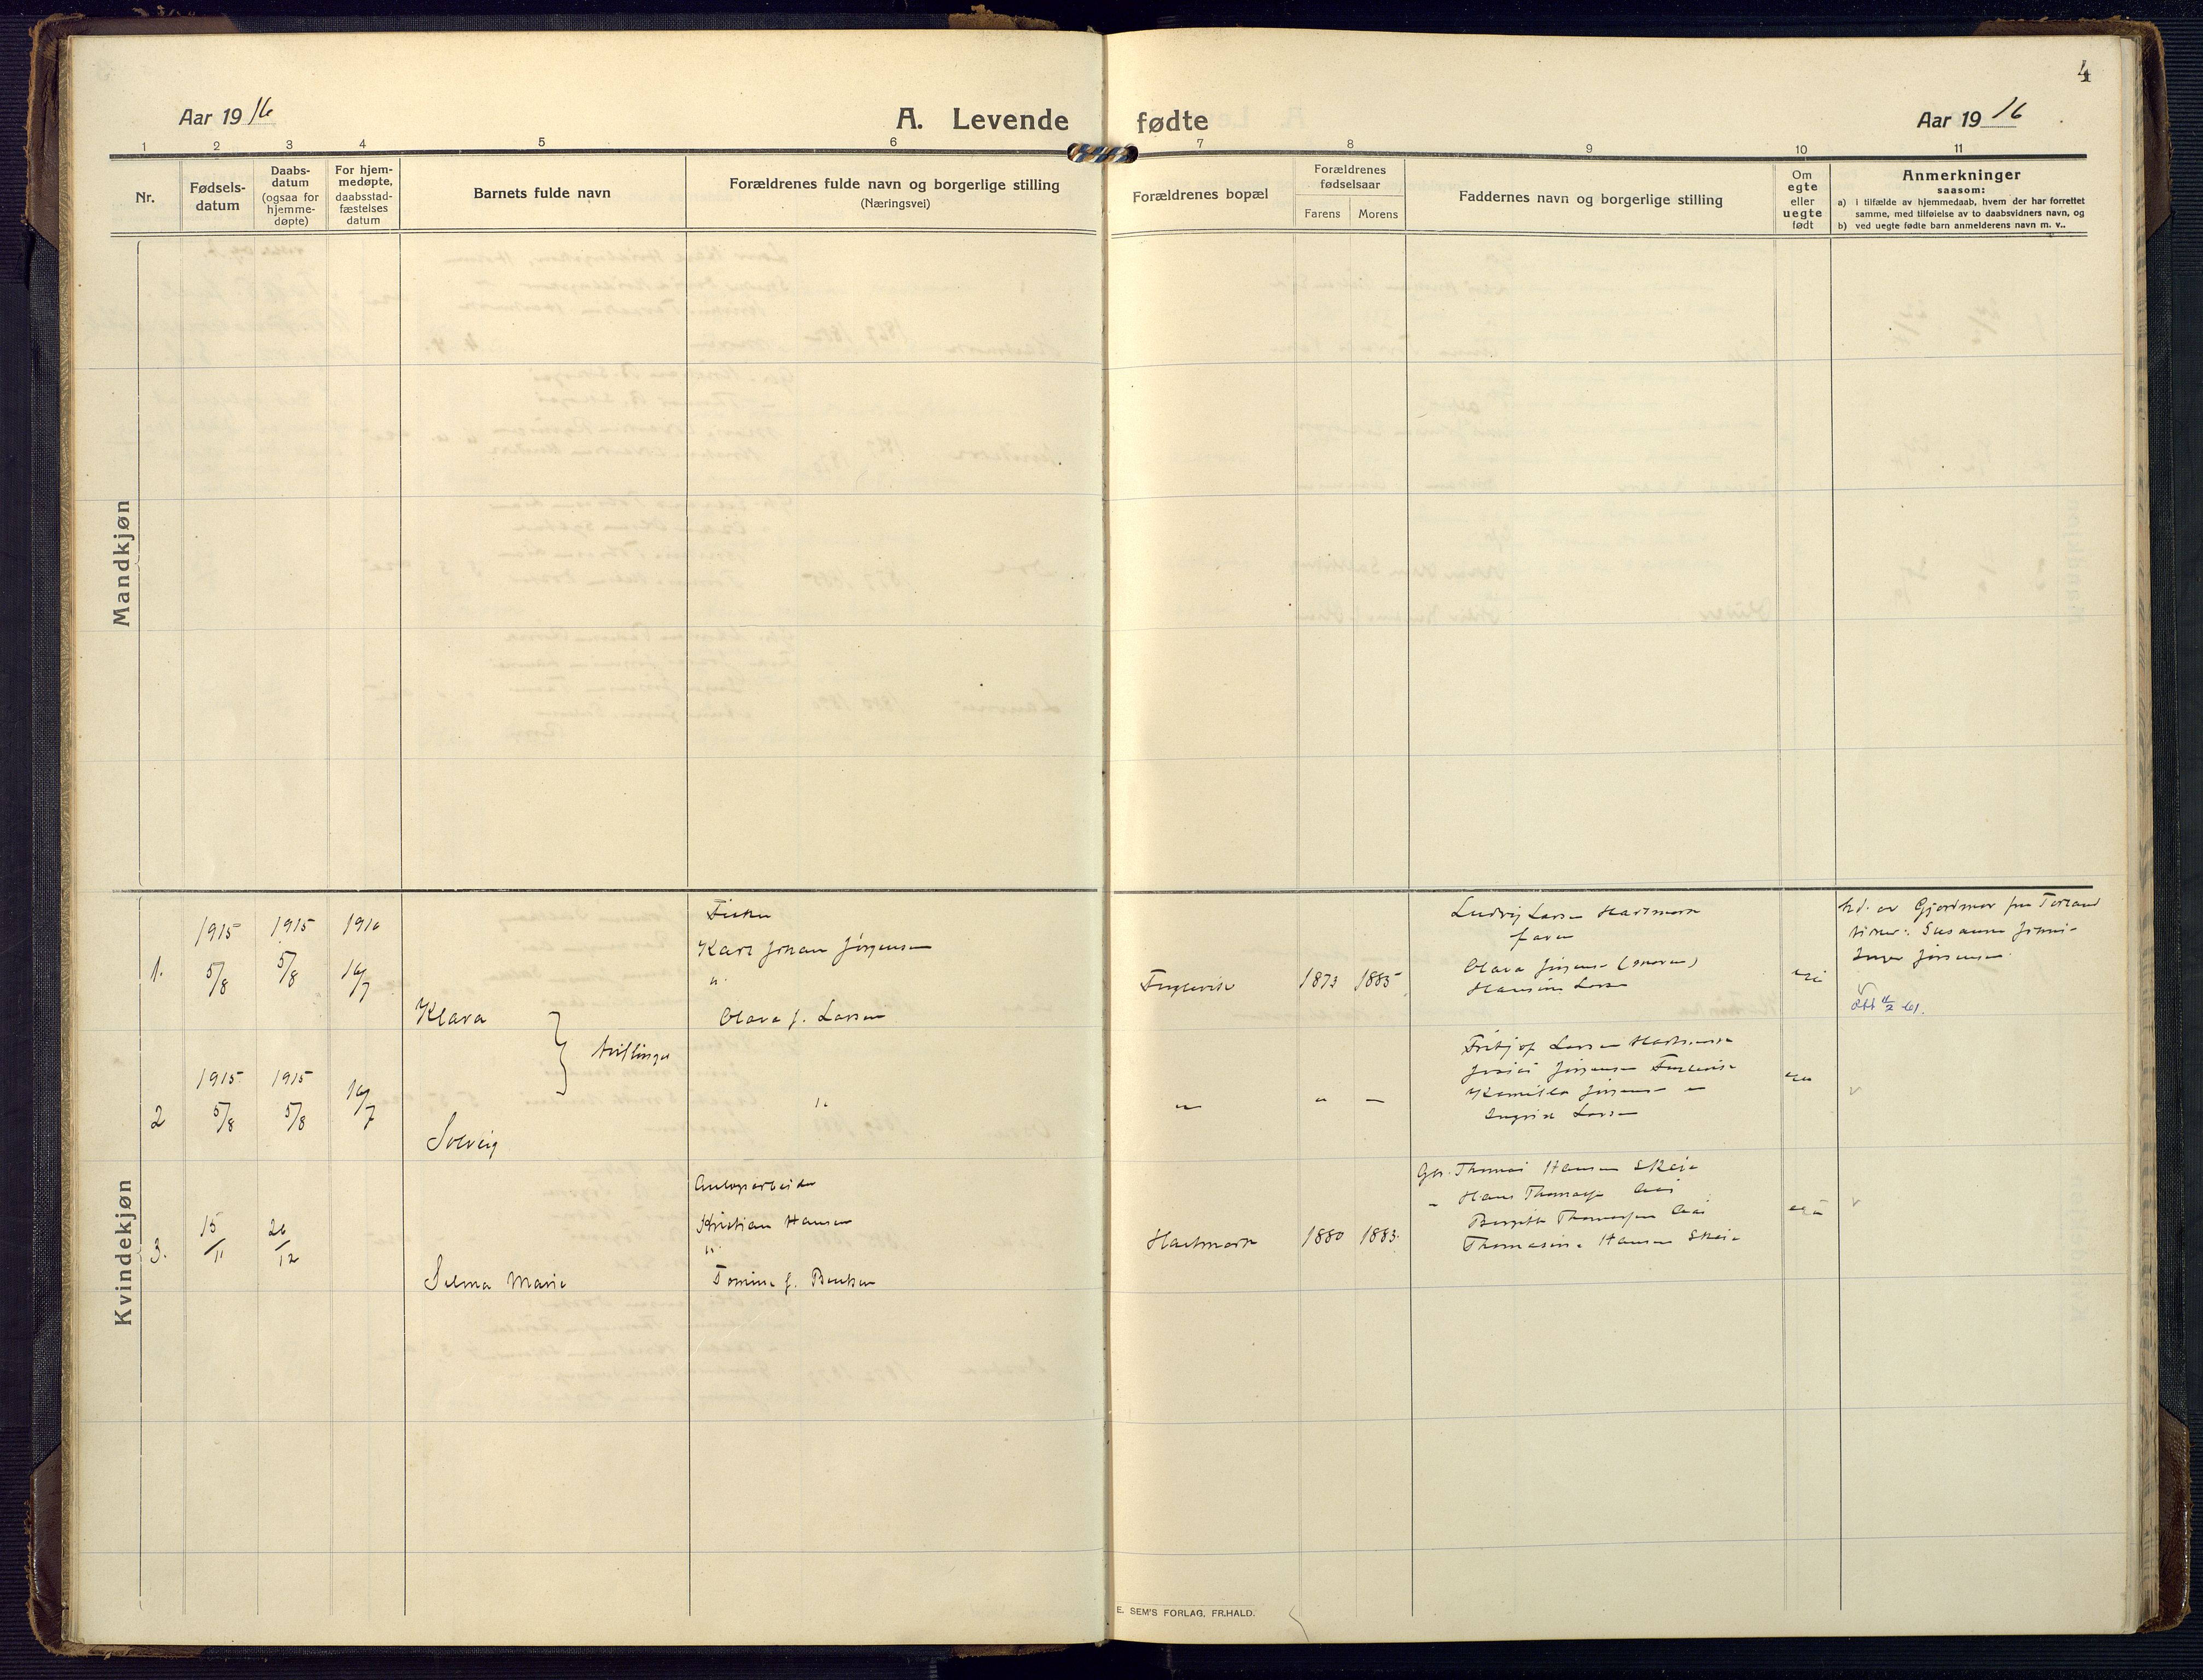 4
Aar 1916
A. Levende fødte
Aar 1916
1 2 3 4 5 6 7 8 9 10 11
Nr.
Fødsels-
datum
Daabs-
datum
(ogsaa for
hjemme-
døpte)
For hjem-
medøpte,
daabsstad-
fæstelses
datum
Barnets fulde navn
Forældrenes fulde navn og borgerlige stilling
(Næringsvei)
Forældrenes bopæl
Forældrenes
fødselsaar
Farens Morens
Faddernes navn og borgerlige stilling
Om
egte
eller
uegte
født
Anmerkninger
saasom:
a) i tilfælde av hjemmedaab, hvem der har forrettet
samme, med tilføielse av to daabsvidners navn, og
b) ved uegte fødte barn anmelderens navn m. v..
Mandkjøn
Kvindekjøn
1.
1915
5/8
1915
5/8
1916
16/7
Klara
tvillinger
Fisker
Karl Johan Jørgensen
"
Clara f. Larsen
1873 1885
Ludvig Larsen Hartmark
faren
Clara Jørgensen (moren)
Larsen
hd. av Gjordmor fru
Susanne
Jørgensen
2
1915
5/8
1915
5/8
16/7
Solveig
"
" "
Fritjof Larsen Hartmark
Jørgensen
Kamilla Jørgensen
Ingrid Larsen
3.
15/11
26/12
Selma Marie
Anlægsarbeider
Kristian Hansen
"
Tomine f. Bentsen
Hartmark
1880 1883
Gbr. Thomas Hansen Skeie
" Hans Thomasen
Thomasen
Thomasine Hansen Skeie
E. SEM'S FORLAG, FR.HALD.